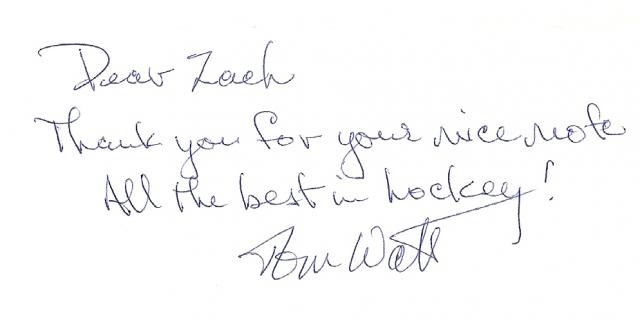 Dear Zach
Thank you for your nice note
All the best in hockey!
Tom Watt